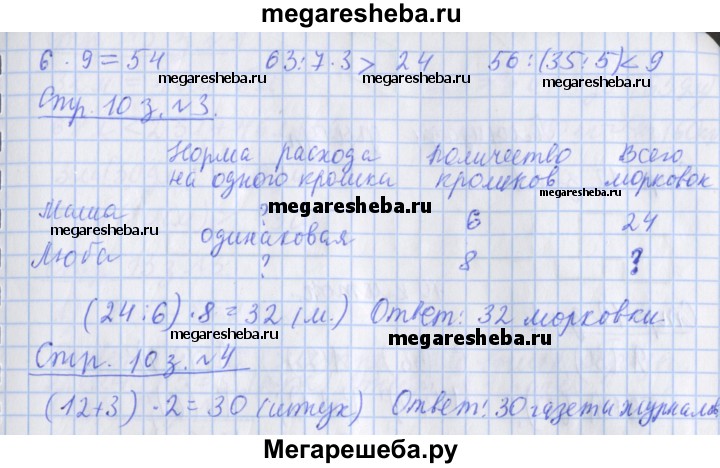 megaresheba.ru
6 · 9 = 54 63 : 7 · 3 > 24 56 : (35 : 5) < 9
megaresheba.ru megaresheba.ru megaresheba.ru
Стр. 10 з. №3.
Норма расхода Количество Всего
на одного кролика кроликов морковок
megaresheba.ru
Маша ? 6 24
megaresheba.ru
megaresheba.ru одинаковая
Люба ? 8 ?
(24 : 6) · 8 = 32 (м.) Ответ: 32 морковки.
megaresheba.ru megaresheba.ru
Стр. 10 з. №4
(12 + 3) · 2 = 30 (штук) Ответ: 30 газет и журналов
Мегарешеба.ру